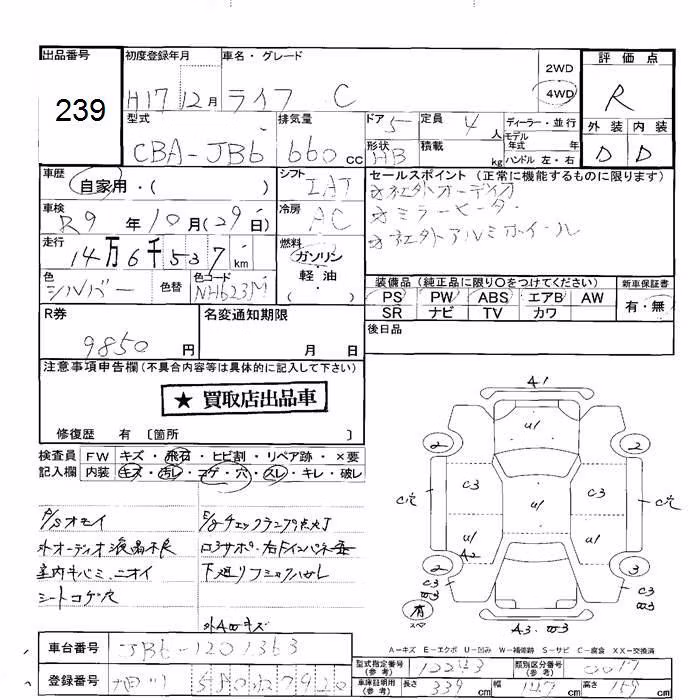 出品番号 初度登録年月 車名・グレード 評価点
239
H17 12月 ライフ C 2WD 4WD R
型式 排気量 ドア 5 定員 4人 ディーラー・並行 外装 内装
CBA-JB6 660cc 形状 HB 積載 kg モデル年式 年 ハンドル 左・右 D D
車歴 シフト セールスポイント (正常に機能するものに限ります)
自家用・( ) IAT ☆社外オーディオ
車検 冷房 ☆ミラーヒーター
R9年10月(29日) AC ☆社外アルミホイール
走行 燃料
14万6千537km ガソリン
色 色替 色コード 軽油
シルバー NH623M ( )
装備品 (純正品に限り○をつけてください) 新車保証書
PS PW ABS エアB AW 有・無
SR ナビ TV カワ
R券 名変通知期限 後日品
9850円 月 日
注意事項申告欄(不具合内容等は具体的に記入して下さい)
★ 買取店出品車
修復歴 有 〔箇所 〕
検査員 FW キズ・飛石・ヒビ割・リペア跡・×要
記入欄 内装 キズ・汚レ・コゲ・穴・スレ・キレ・破レ
P/Sオモイ E/gチェックランプ点灯
外オーディオ液晶不良
室内キバミ、ニオイ
シートコゲ穴
外AWキズ
A1
U1
2 2
C穴 C3 C3 C穴
U1 U1 U1
A2
2 3
C3 W3 C3 W3
有
U1
A3 W3
A−キズ E−エクボ U−凹み W−補修跡 S−サビ C−腐食 XX−交換済
車台番号 JB6-1201363
型式指定番号(参考) 類別区分番号(参考)
登録番号 580 7920
車庫証明用(参考) 長さ 339cm 幅 147cm 高さ 159cm